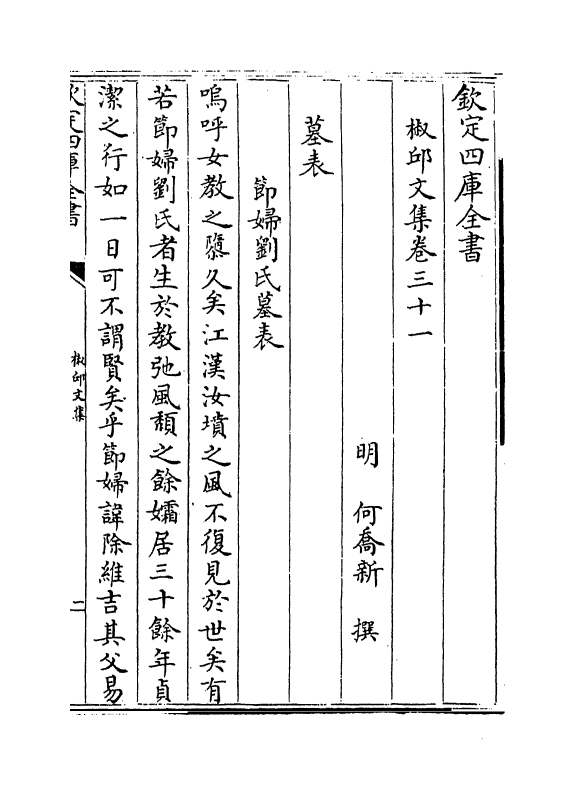 欽定四庫全書
椒邱文集卷三十一
明 何喬新 撰
墓表
節婦劉氏墓表
嗚呼女教之隳久矣江漢汝墳之風不復見於世矣有
若節婦劉氏者生於教弛風頹之餘孀居三十餘年貞
潔之行如一日可不謂賢矣乎節婦諱除維吉其父易
欽定四庫全書
椒邱文集
二